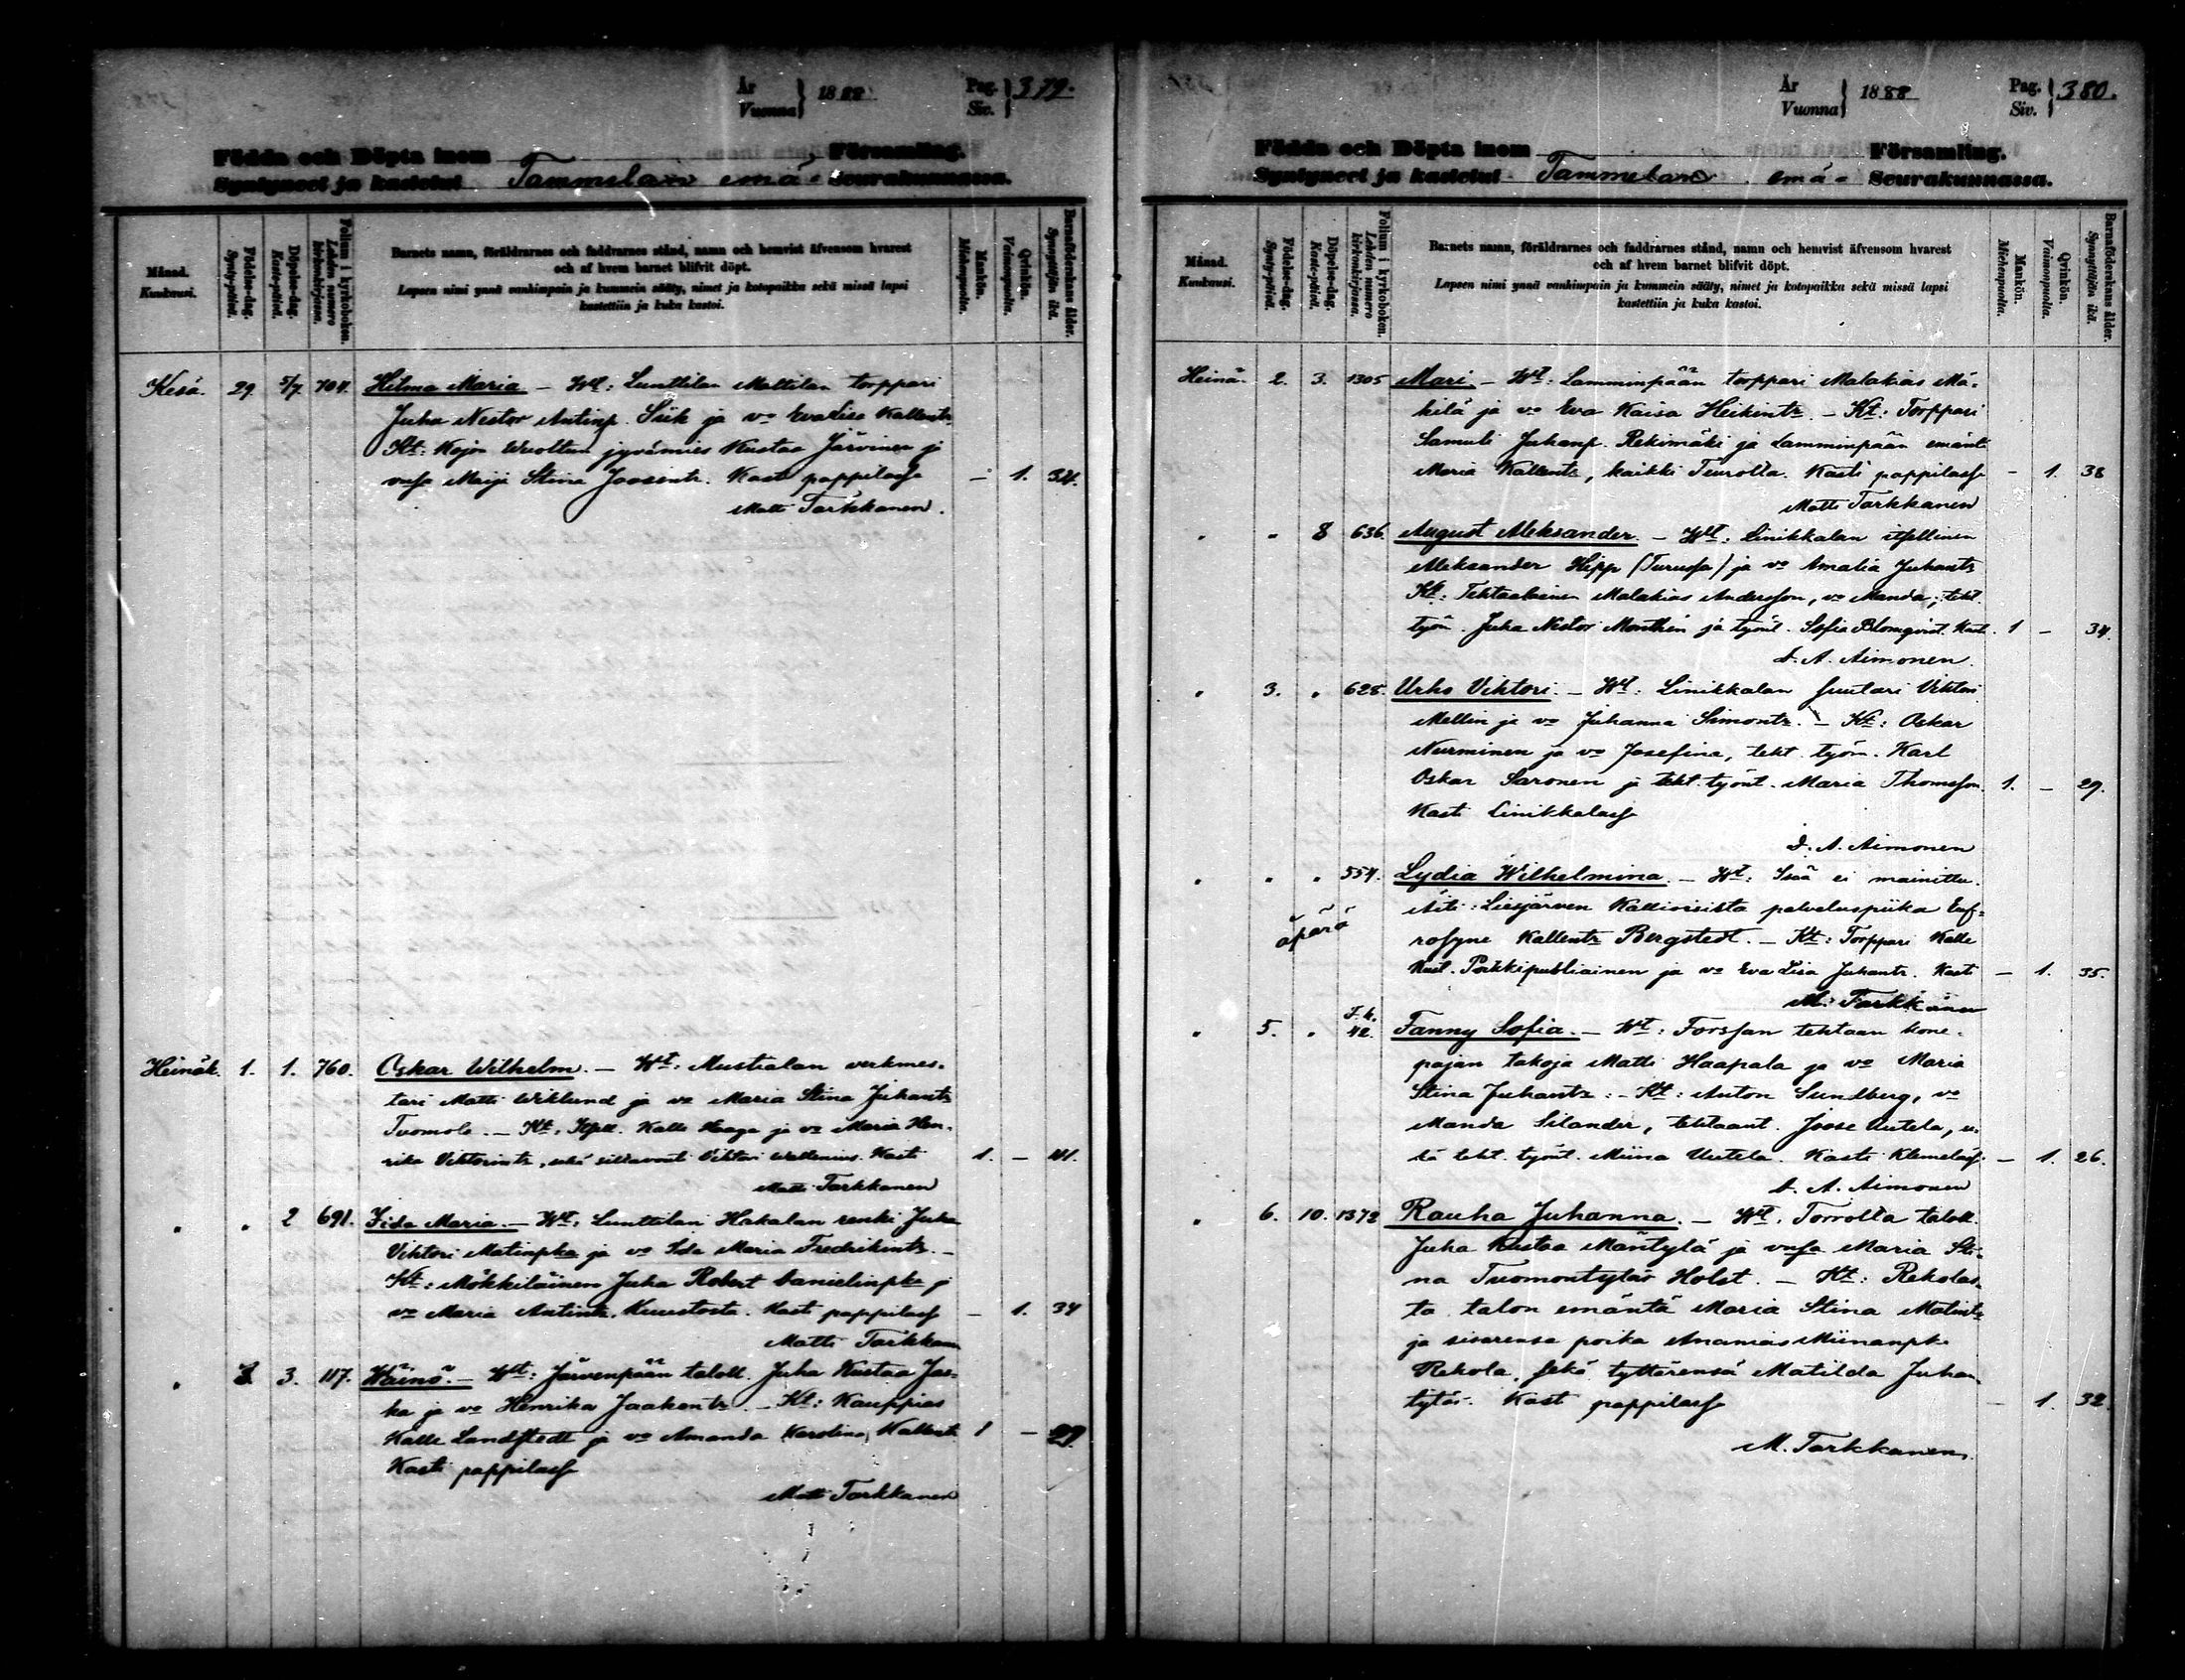 År
Vuonna } 1888
Pag.
Siv. } 379.
Födda och Döpta inom Församling.
Syntyneet ja kastetut Tammelan emä- Seurakunnassa.
Månad.
Kuukausi.
Födelse-dag.
Synty-päivä.
Döpelse-dag.
Kaste-päivä.
Folium i kyrkoboken.
Lehden numero kirkonkirjassa.
Barnets namn, föräldrarnes och faddrarnes stånd, namn och hemvist äfvensom hvarest
och af hvem barnet blifvit döpt.
Lapsen nimi ynnä vanhimpain ja kummein sääty, nimet ja kotopaikka sekä missä lapsi
kastettiin ja kuka kastoi.
Mankön.
Miehenpuolia.
Qvinkön.
Vaimonpuolia.
Barnaföderskans ålder.
Synnyttäjän ikä.
Kesä. 29. 5/7. 704. Hilma Maria – Wt: Lunttilan Mattilan torppari
Juha Nestor Antinp. Siik ja vo Eva Lisa Kallentr.
Kt: Kojon Wuoltun jyvämies Kustaa Järvinen ja
vnsa Maija Stina Joosentr. Kasti pappilassa – 1. 34.
Matti Tarkkanen.
Heinäk. 1. 1. 760. Oskar Wilhelm. – Wt: Mustialan verkmes-
tari Matti Wiklund ja vo Maria Stina Juhantr
Tuomola. – Kt: Itsell. Kalle Haaga ja vo Maria Hen-
rika Viktorintr, sekä siltavouti Viktori Wallenius. Kasti 1. – 41.
Matti Tarkkanen
" " 2 691. Fida Maria. – Wt: Lunttilan Hakalan renki Juha
Viktori Matinpka ja vo Ida Maria Fredrikintr. –
Kt: Mökkiläinen Juha Robert Danielinpka ja
vo Maria Antintr, Kuustosta. Kasti pappilassa – 1. 34
Matti Tarkkanen
" 3. 117. Wäinö. – Wt: Järvenpään taloll. Juha Kustaa Jas-
ka ja vo Henrika Jaakontr. – Kt: Kauppias
Kalle Landstedt ja vo Amanda Karolina Kallent. 1 – 29.
Kasti pappilassa
Matti Tarkkanen
År
Vuonna } 1888
Pag.
Siv. } 380.
Födda och Döpta inom Församling.
Syntyneet ja kastetut Tammelan emä- Seurakunnassa.
Månad.
Kuukausi.
Födelse-dag.
Synty-päivä.
Döpelse-dag.
Kaste-päivä.
Folium i kyrkoboken.
Lehden numero kirkonkirjassa.
Barnets namn, föräldrarnes och faddrarnes stånd, namn och hemvist äfvensom hvarest
och af hvem barnet blifvit döpt.
Lapsen nimi ynnä vanhimpain ja kummein sääty, nimet ja kotopaikka sekä missä lapsi
kastettiin ja kuka kastoi.
Mankön.
Miehenpuolia.
Qvinkön.
Vaimonpuolia.
Barnaföderskans ålder.
Synnyttäjän ikä.
Heinä. 2. 3. 1305 Mari. – Wt: Lamminpään torppari Malakias Mä-
kilä ja vo Eva Kaisa Heikintr. – Kt: Torppari
Samuli Juhanp. Rekimäki ja Lamminpään emäntä
Maria Kallentr, kaikki Teurolla. Kasti pappilassa – 1. 38
Matti Tarkkanen
" " 8 636. August Aleksander. – Wt: Linikkalan itsellinen
Aleksander Hipp (Turussa) ja vo Amalia Juhantr
Kt: Tehtaalainen Malakias Andersson, vo Manda; teht.
työn. Juha Nestor Monthén ja työnt. Sofia Blomqvist. Kast. 1 – 34.
D. A. Aimonen.
" 3. " 628. Urho Viktori. – Wt: Linikkalan suutari Viktori
Mellin ja vo Juhanna Simontr. – Kt: Oskar
Nurminen ja vo Josefina, teht. työn. Karl
Oskar Saronen ja teht. työnt. Maria Thomasson. 1. – 29.
Kasti Linikkalassa
D. A. Aimonen
" " " 554. Lydia Wilhelmina. – Wt: Isä ei mainittu.
äpärä
Äiti: Liesjärven palveluspiika Euf-
rosyne Kallentr Bergstedt. – Kt: Torppari Kalle
Kust. ja vo Eva Lisa Juhantr. Kasti – 1. 35.
M. Tarkkanen
" 5. " F. k. 42. Fanny Sofia. – Wt: Forssan tehtaan kone-
pajan takoja Matti Haapala ja vo Maria
Stina Juhantr: – Kt: Anton Sundberg, vo
Manda Silander, tehtaant. Joose Uutela, se-
kä teht. työnt. Miina Uutela. Kasti Klemelässä – 1. 26.
D. A. Aimonen
" 6. 10. 1372 Rauha Juhanna. – Wt: Torrolla taloll.
Juha Kustaa Mäntylä ja vnsa Maria Sti-
na Tuomontytär Holst. – Kt: Rekolas-
ta talon emäntä Maria Stina Matintr
ja sisarensa poika Ananias Miinanpka
Rekola, sekä tyttärensä Matilda Juhan-
tytär. Kast pappilassa – 1. 32.
M. Tarkkanen.